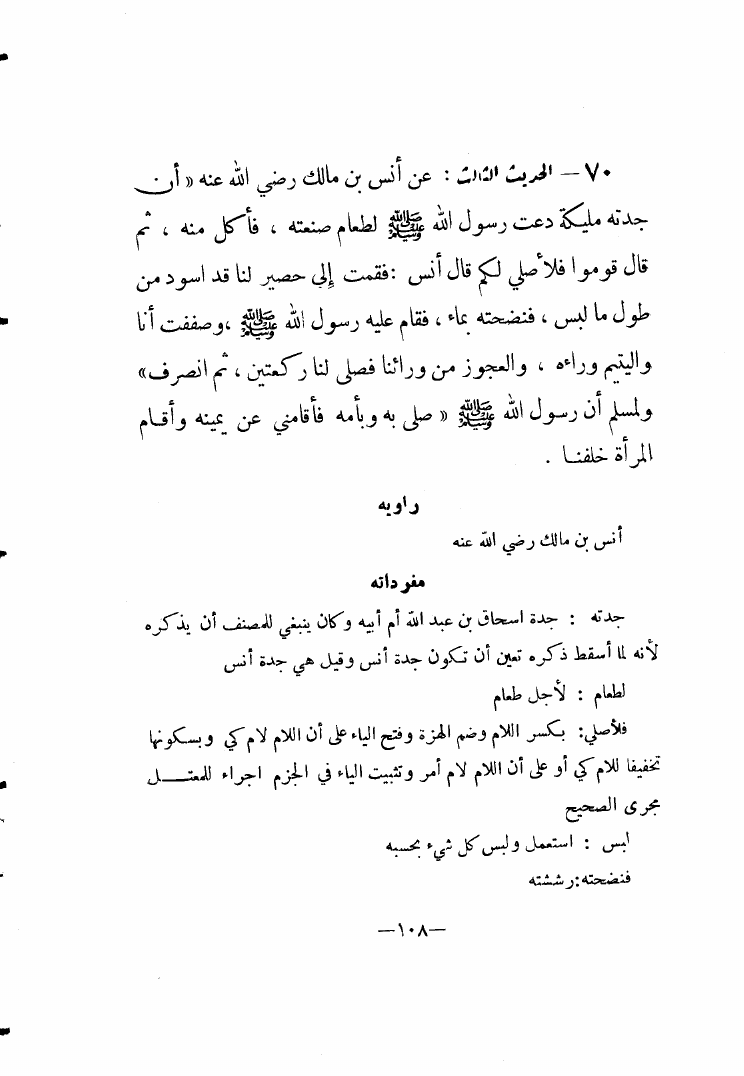 ٧٠ – الحديث الثالث : عن أنس بن مالك رضي الله عنه « أن
جدته مليكة دعت رسول الله ﷺ لطعام صنعته ، فأكل منه ، ثم
قال قوموا فلأصلي لكم قال أنس :فقمت إلى حصير لنا قد اسود من
طول ما لبس ، فنضحته بماء ، فقام عليه رسول الله ﷺ ،وصففت أنا
واليتيم وراءه ، والعجوز من ورائنا فصلى لنا ركعتين ، ثم انصرف»
ولمسلم أن رسول الله ﷺ « صلى به وبأمه فأقامني عن يمينه وأقام
المرأة خلفنا .
راويه
أنس بن مالك رضي الله عنه
مفرداته
جدته : جدة اسحاق بن عبد الله أم أبيه وكان ينبغي للمصنف أن يذكره
لأنه لما أسقط ذكره تعين أن تكون جدة أنس وقيل هي جدة أنس
لطعام : لأجل طعام
فلأصلي: بكسر اللام وضم الهزة وفتح الياء على أن اللام لام كي وبسكونها
تخفيفا للام كي أو على أن اللام لام أمر وتثبيت الياء في الجزم اجراء للمعتل
مجرى الصحيح
لبس : استعمل ولبس كل شيء بحسبه
فنضحته:رششته
—١٠٨—